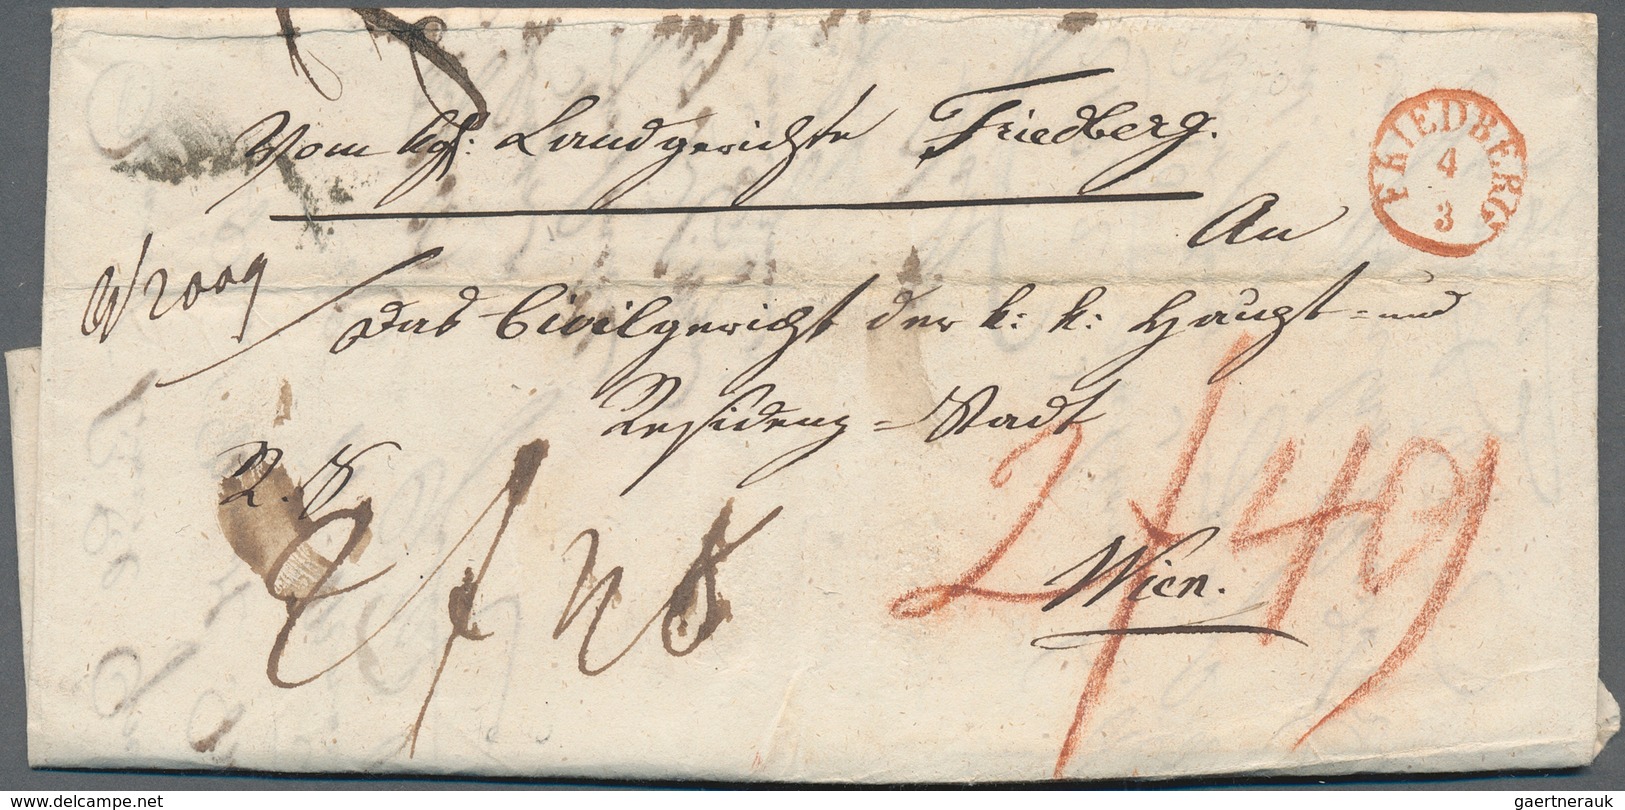 Vom kgl: Landgerichte Friedberg.
FRIEDBERG
4
3
An
2009
Das Civilgericht der k: k: Haupt- und
Residenz-Stadt
R. S.
2/49
Wien.
delcampe.net
gaertnerauk